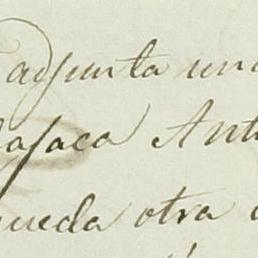 adjunta una
Ant
queda otra